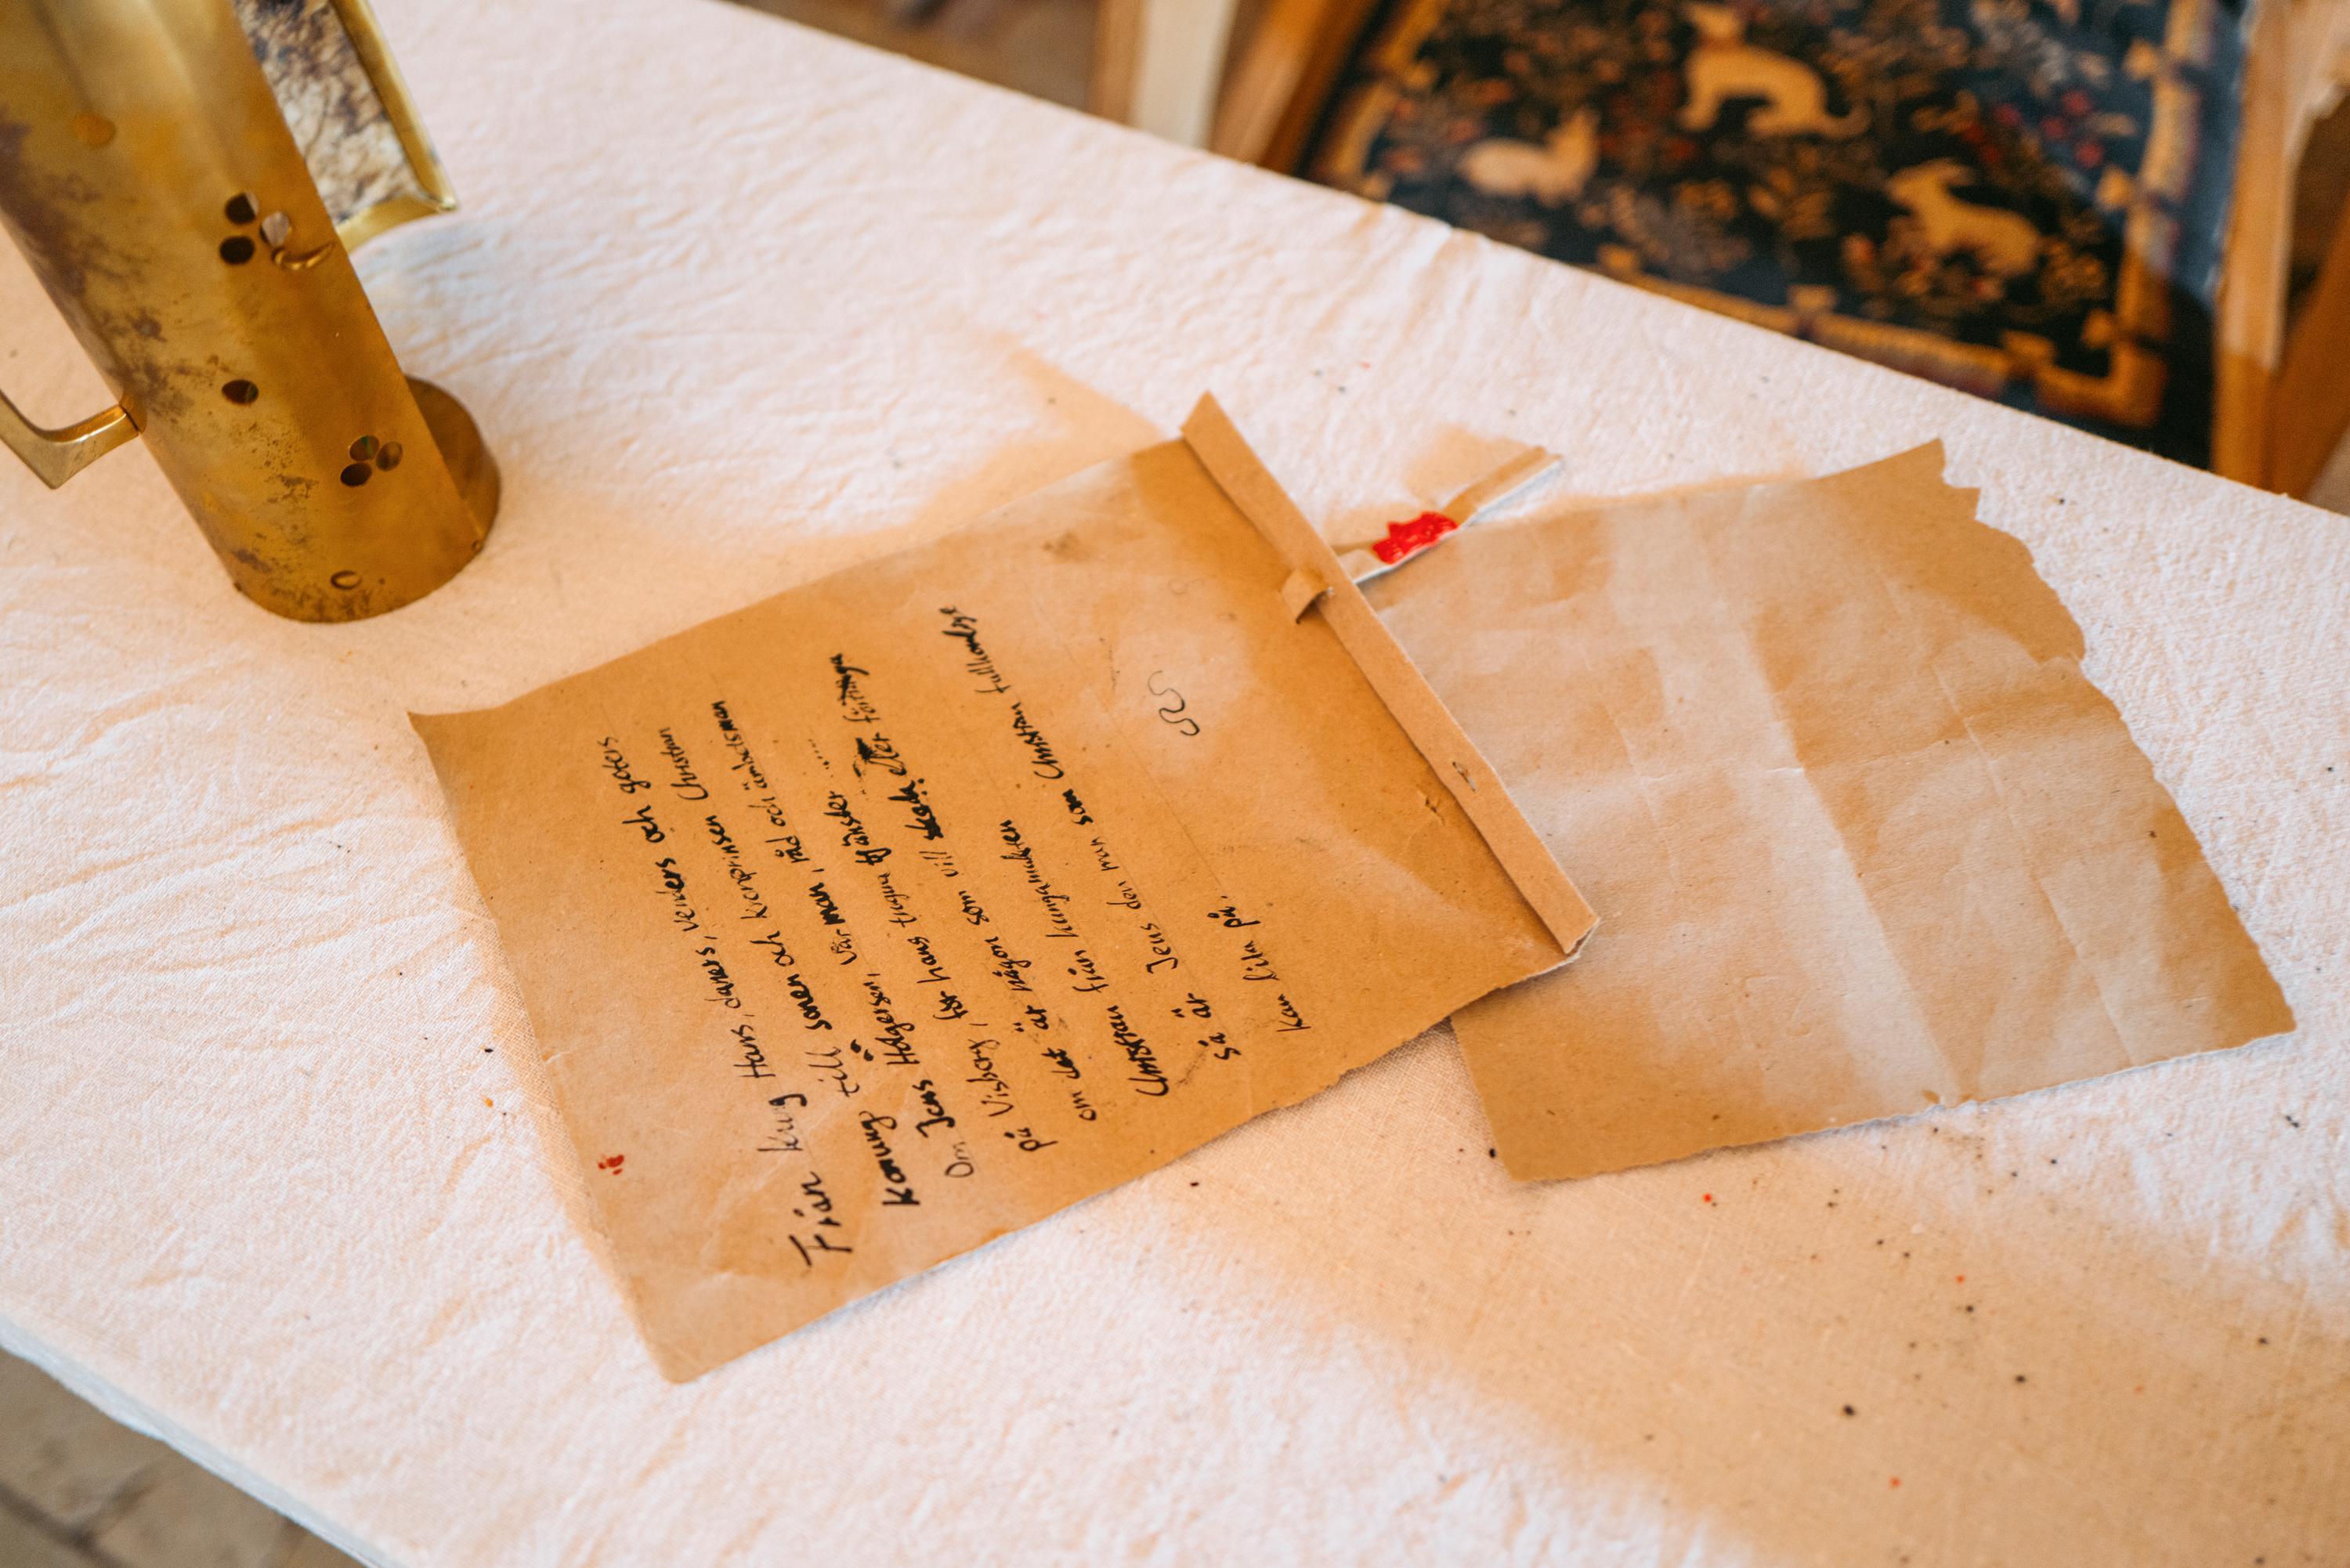 Från kung Hans, daners, venders och goters
Konung till sonen och kronprinsen Christian
Om Jens Holgersen, vår man, råd och ämbetsman
på Visborg, för hans trogna tjänster .....
om det är någon som vill eller
Christian från kungamakten
så är Jens den man som Christian
kan lita på.